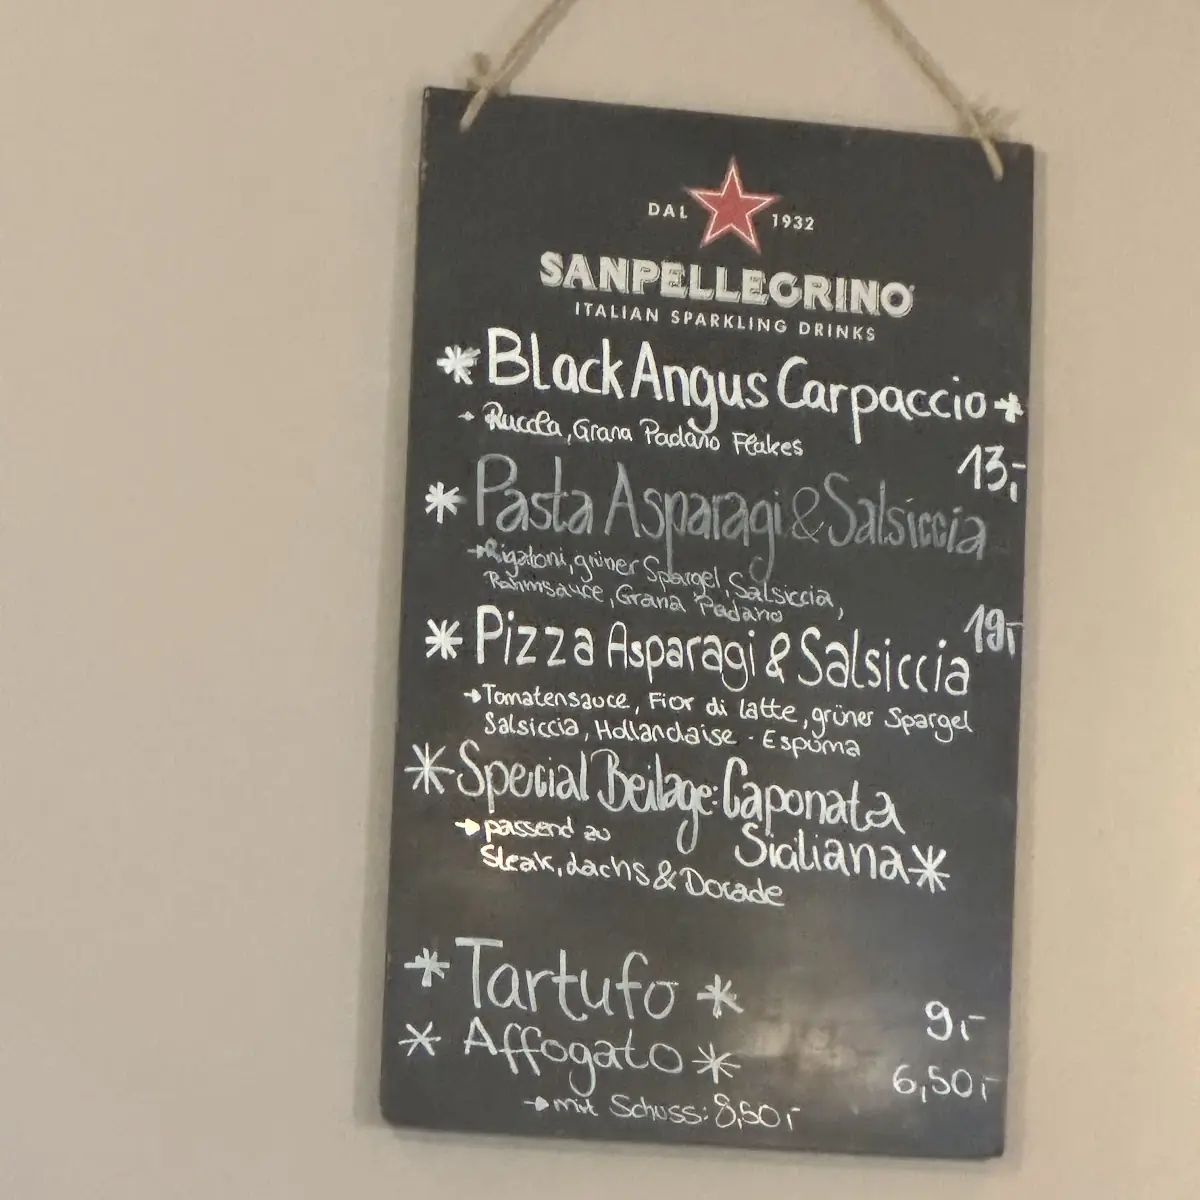 DAL 1932
SANPELLEGRINO
ITALIAN SPARKLING DRINKS
* Black Angus Carpaccio *
→ Rucola, Grana Padano Flakes
13,-
* Pasta Asparagi & Salsiccia
→ Rigatoni, grüner Spargel, Salsiccia,
Rahmsauce, Grana Padano
19,-
* Pizza Asparagi & Salsiccia
→ Tomatensauce, Fior di latte, grüner Spargel
Salsiccia, Hollandaise - Espuma
* Special Beilage: Caponata
Siciliana *
→ passend zu
Steak, Lachs & Dorade
* Tartufo * 9,-
* Affogato * 6,50,-
→ mit Schuss: 8,50,-